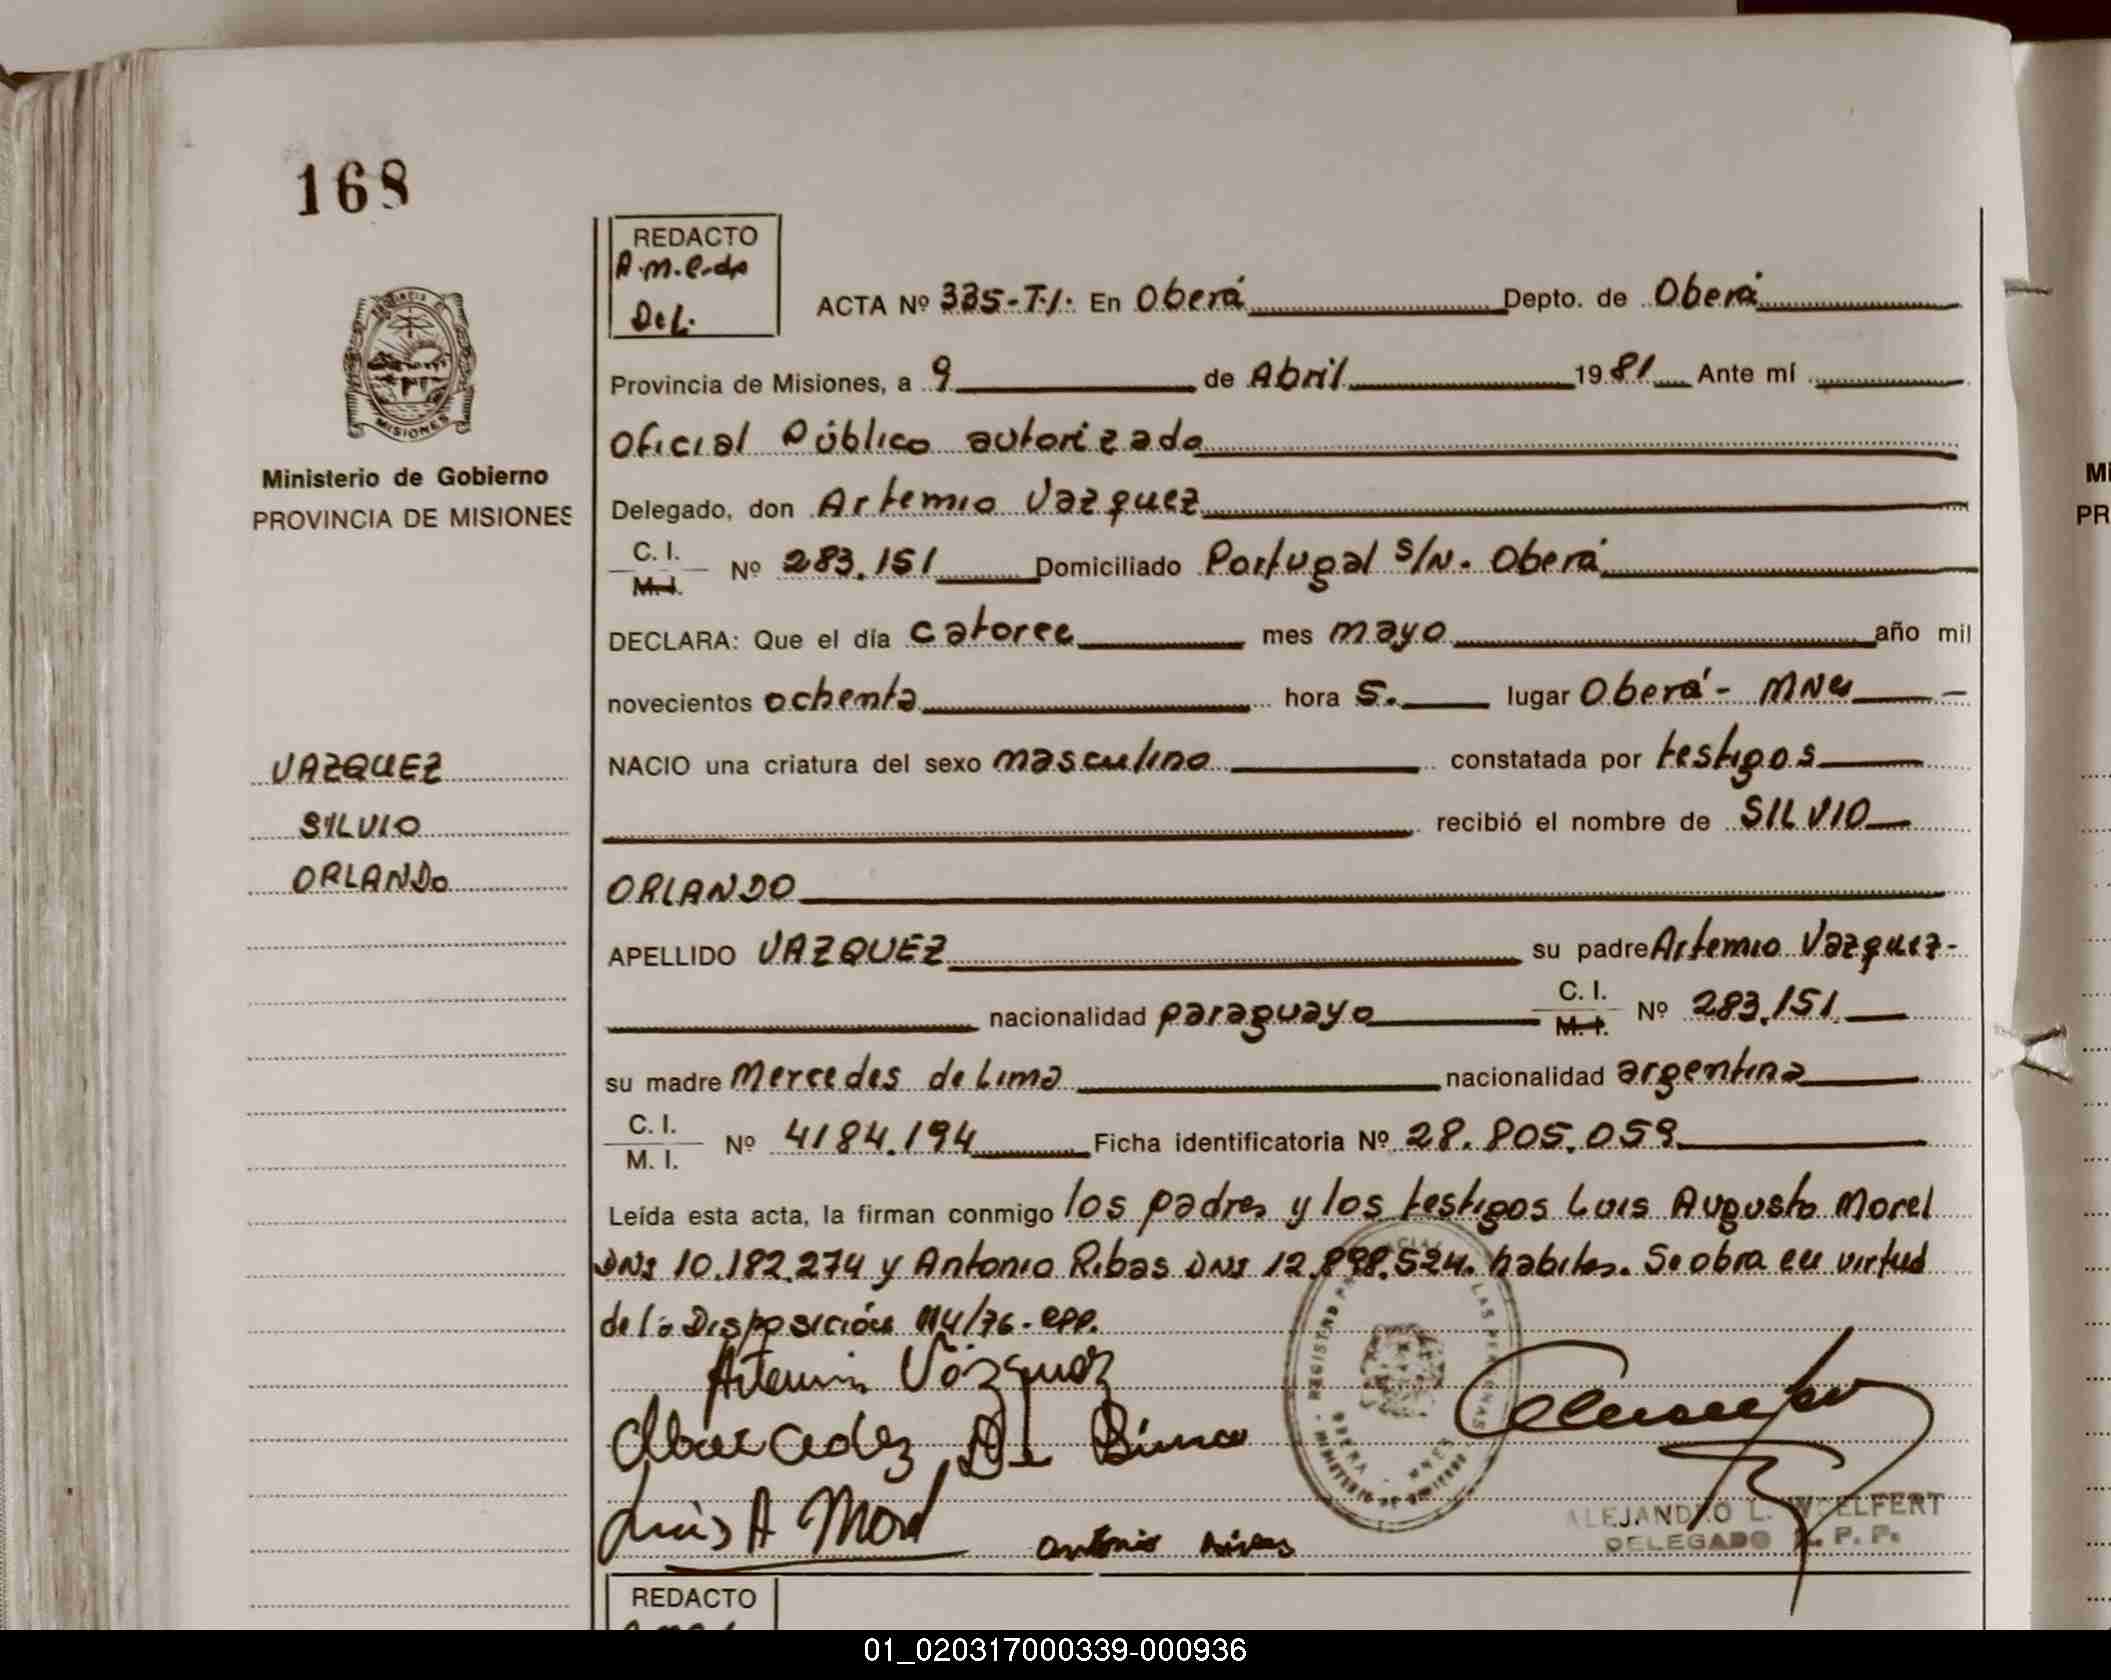 168
MISIONES
Ministerio de Gobierno
PROVINCIA DE MISIONES
VAZQUEZ
SILVIO
ORLANDO
REDACTO
Del.
ACTA Nº 335-T.I. En Oberá Depto. de Oberá
Provincia de Misiones, a 9 de Abril 1981 Ante mí
Oficial Público autorizado
Delegado, don Artemio Vazquez
C. I. M. I. Nº 283.151 Domiciliado Portugal S/N. Oberá
DECLARA: Que el día catorce mes mayo año mil
novecientos ochenta hora 5. lugar Oberá - MNes
NACIO una criatura del sexo masculino constatada por testigos
recibió el nombre de SILVIO
ORLANDO
APELLIDO VAZQUEZ su padre Artemio Vazquez-
nacionalidad paraguayo C. I. M. I. Nº 283.151
su madre Mercedes de Lima nacionalidad argentina
C. I. M. I. Nº 4184.194 Ficha identificatoria Nº 28.805.059
Leída esta acta, la firman conmigo los padres y los testigos Luis Augusto Morel
DNI 10.182.274 y Antonio Ribas DNI 12.898.524. habiles. Se obra en virtud
de la Disposición 114/76-
Artemio Vázquez
Luis A Morel
Antonio
REGISTRO LAS PERSONAS
OBERA - MNES
MINISTERIO DE GOBIERNO
ALEJANDRO L. WOELFERT
DELEGADO R. P. P.
REDACTO
MI
PR
01_020317000339-000936